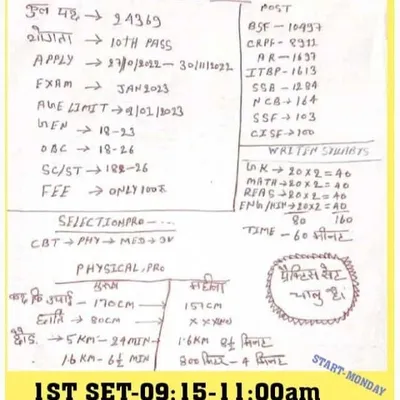 कुल पद → 24369
योग्यता → 10TH PASS
APPLY → 27/0/2022 — 30/11/2022
EXAM → JAN 2023
AGE LIMIT → 01/01/2023
GEN → 18-23
OBC → 18-26
SC/ST →
FEE → ONLY 100₹
POST
BSF - 10497
CRPF - 8911
AR - 1697
ITBP - 1613
SSB - 1284
NCB → 164
SSF → 103
CISF → 100
GK → 20×2 = 40
MATH → 20×2 = 40
REAS → 20×2 = 40
ENG/HIN → 20×2 = 40
80 160
TIME - 60 मीनट
SELECTIONPRO - ...
CBT → PHY → MED → DV
PHYSICAL, PRO
पुरुष महीला
170CM → 157CM
छाति → 80CM → XXXNO
दौड → 5KM - 24MIN → 1.6KM 8½ मिनट
1.6KM - 6½ MIN 800 मिटर - 4 मिनट
प्रैक्टिस सेट
चालु है।
START-MONDAY
1ST SET-09:15-11:00am